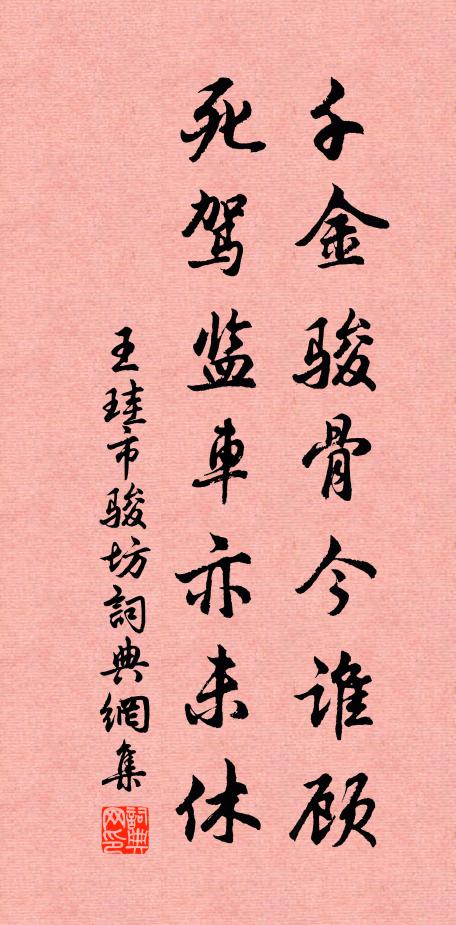 千金骏骨今谁顾
死驾监车亦未休
王珪市骏坊詞典網集
詞典
网印